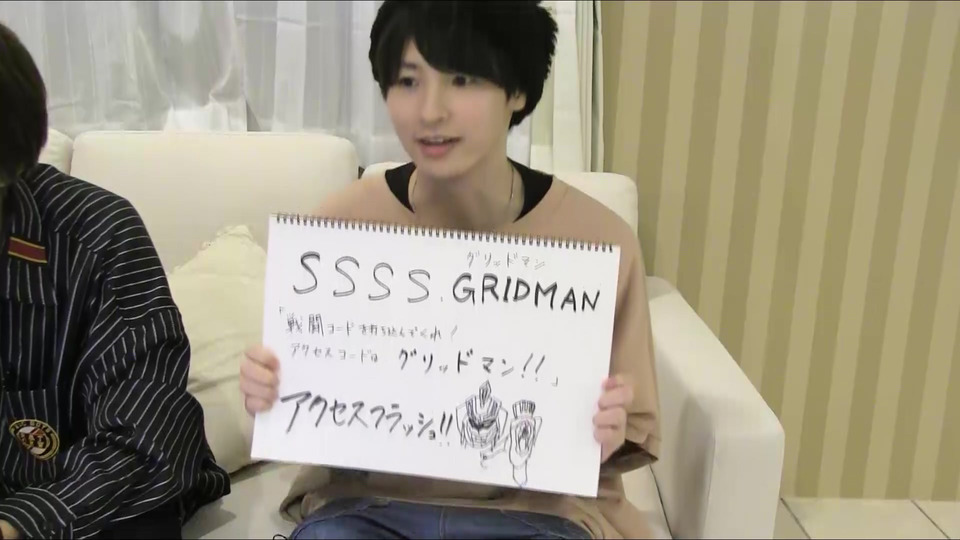 グリッドマン
SSSS.GRIDMAN
「戦闘コードを打ち込んでくれ!
アクセスコードは グリッドマン!!」
アクセスフラッシュ!!